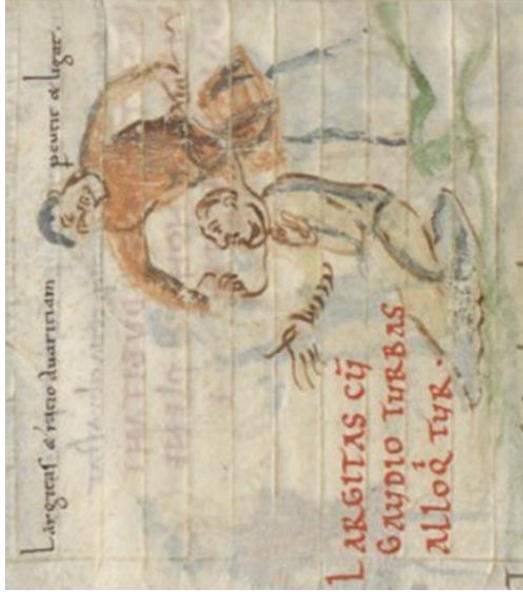 Largitaſ & ratio auaritiam pcutit & ligat.
LARGITAS CŪ
GAUDIO TURBAS
ALLOQͥTUR.